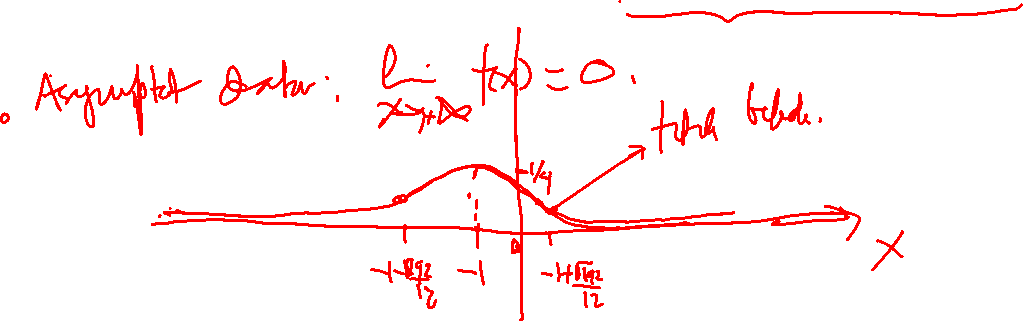 Asymptot Datar: lim f(x) = 0.
x→+∞
titik belok.
1/4
0
-1-√192/12 -1 -1+√192/12
X